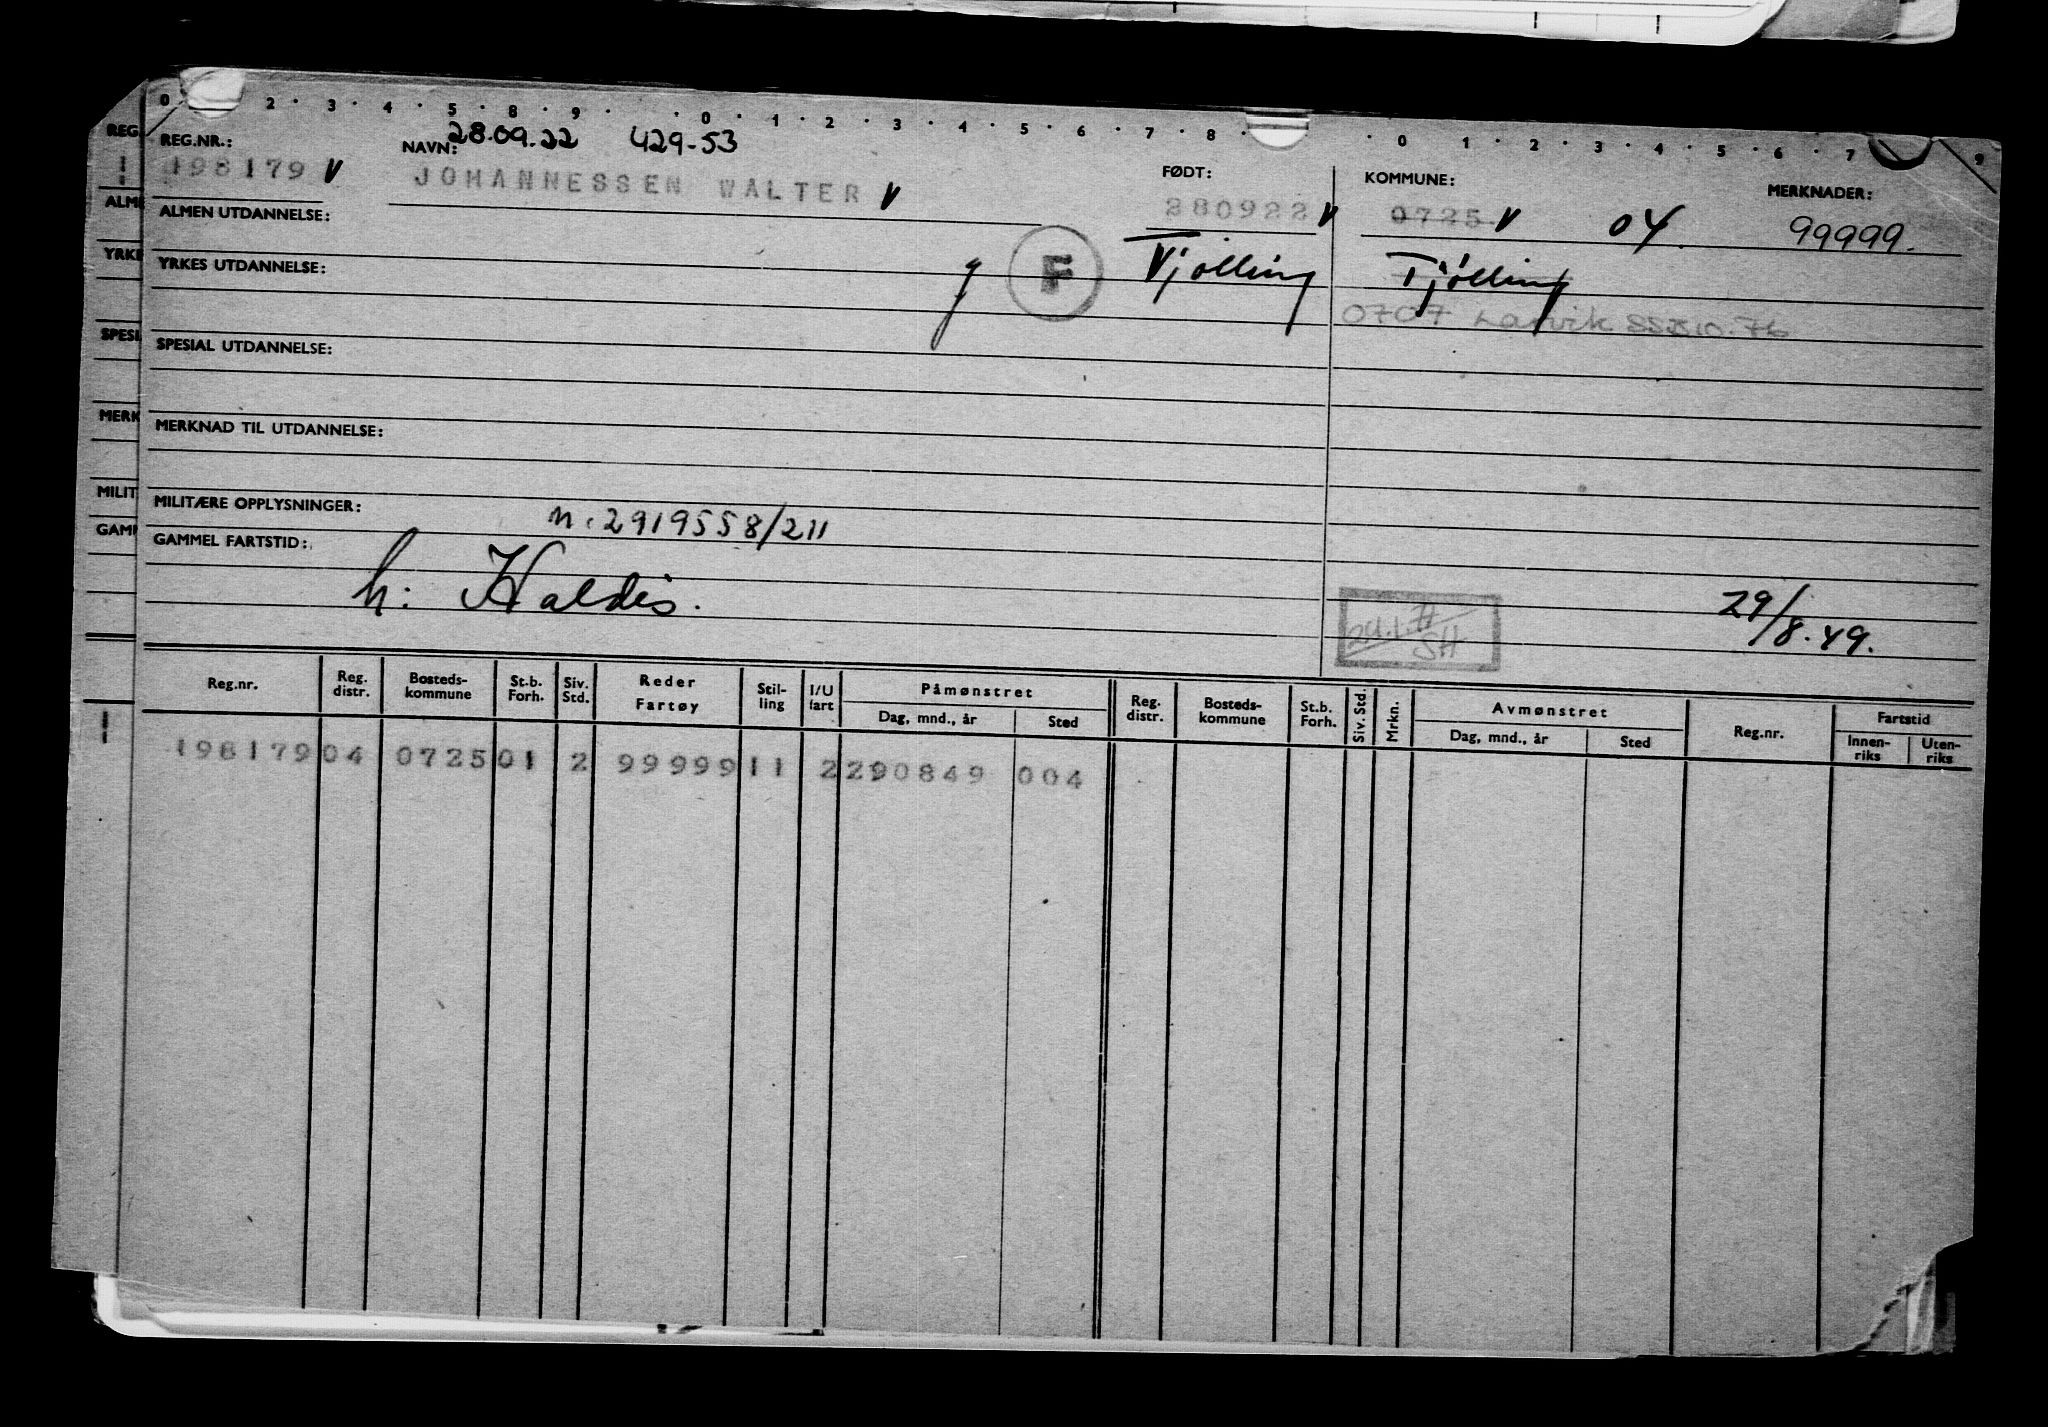 0 2 · 3 · 4 · 5 · 8 · 9 · · 0 · 1 · 2 · 3 · 4 · 5 · 6 · 7 · 8 · · 0 · 1 · 2 · 3 · 4 · 5 · 6 · 7 9
28.09.22 429-53
REG.NR.: NAVN: FØDT: KOMMUNE: MERKNADER:
198179 V JOHANNESSEN WALTER V 280922 V 0725 V 04. 99999.
ALMEN UTDANNELSE:
YRKES UTDANNELSE: g F Tjølling Tjølling
0707 Larvik SSB 10.76
SPESIAL UTDANNELSE:
MERKNAD TIL UTDANNELSE:
MILITÆRE OPPLYSNINGER: n. 2919558/211
GAMMEL FARTSTID:
h: Haldis. SH 29/8.49.
Reg.nr. Reg. distr. Bosteds-kommune St.b. Forh. Siv. Std. Reder Fartøy Stil-ling I/U fart Påmønstret Dag, mnd., år Sted Reg. distr. Bosteds-kommune St.b. Forh. Siv. Std. Mrkn. Avmønstret Dag, mnd., år Sted Reg.nr. Fartstid Innen-riks Uten-riks
198179 04 0725 01 2 99999 11 2 290849 004
REG
ALME
YRKE
SPESI
MERK
MILIT
GAMI